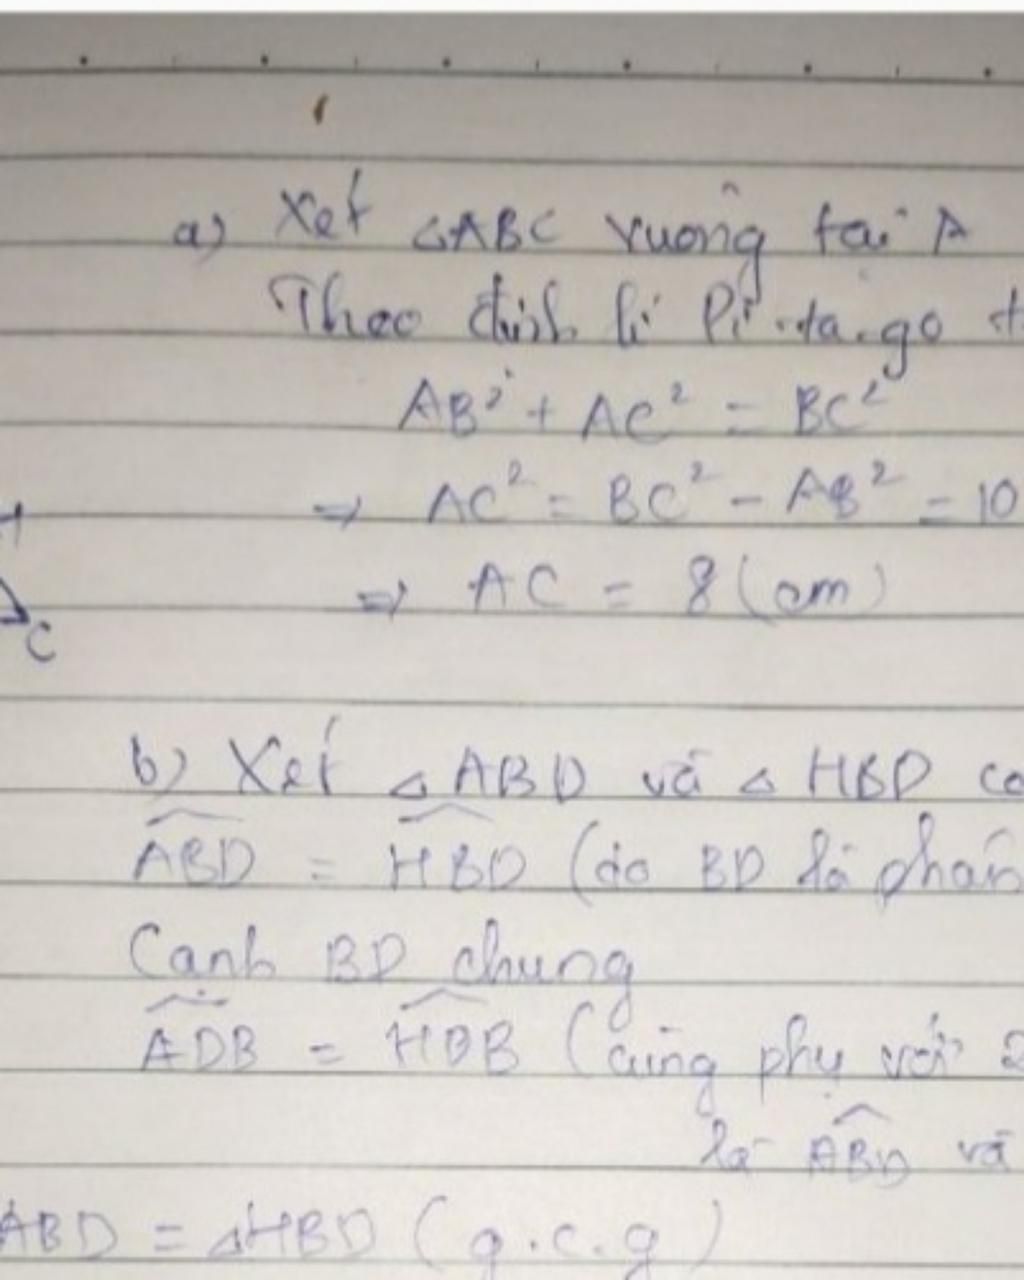 a) Xét △ABC vuông tại A
Theo định lí Pi-ta-go
AB² + AC² = BC²
⇒ AC² = BC² - AB² = 10
⇒ AC = 8 (cm)
H
C
b) Xét △ ABD và △ HBD
ABD = HBD (do BD là phân
Cạnh BD chung
ADB = HDB (cùng phụ với 2
là ABD và
ABD = △HBD (g.c.g)